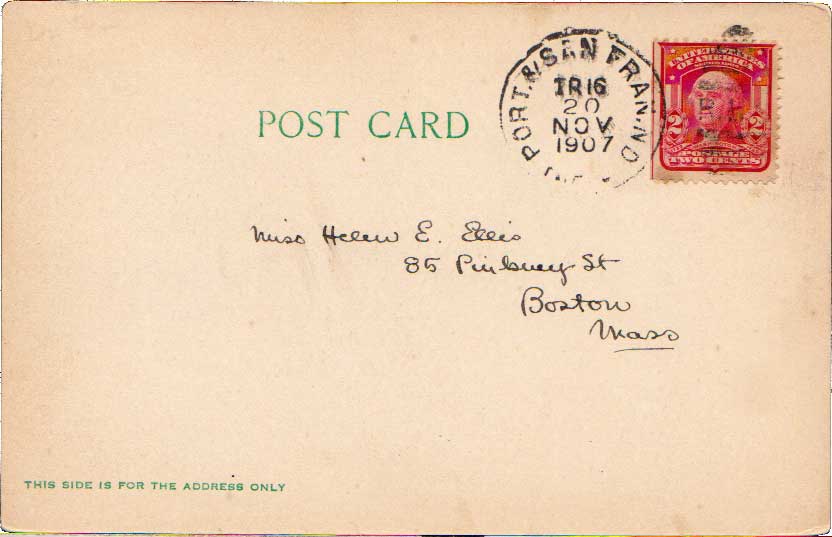 PORT. & SAN FRAN. N.D.
TR 16
20
NOV
1907
UNITED STATES
OF AMERICA
2 2
POSTAGE
TWO CENTS
POST CARD
Miss Helen E. Ellis
85 Pinkney St
Boston
Mass
THIS SIDE IS FOR THE ADDRESS ONLY